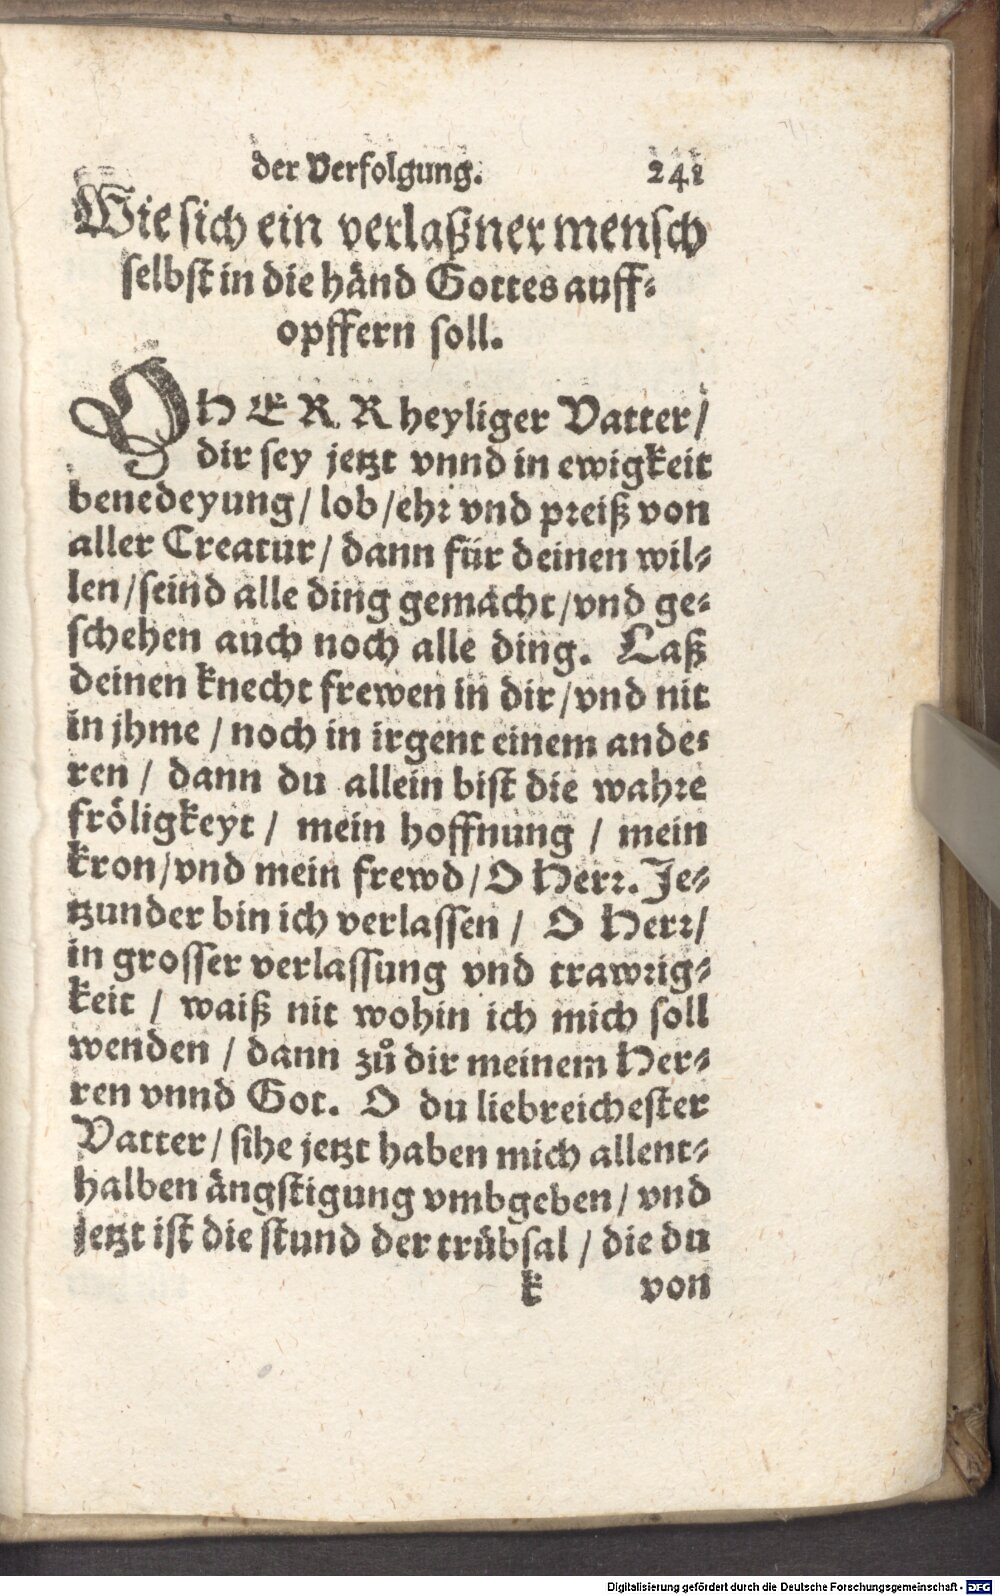 der Verfolgung. 241
Wie sich ein verlaßner mensch
selbst in die händ Gottes auff-
opffern soll.
O HERR heyliger Vatter/
dir sey jetzt vnnd in ewigkeit
benedeyung/ lob/ehr vnd preiß von
aller Creatur/ dann für deinen wil-
len/seind alle ding gemacht/vnd ge-
schehen auch noch alle ding. Laß
deinen knecht frewen in dir/vnd nit
in jhme / noch in irgent einem ande-
ren / dann du allein bist die wahre
fröligkeyt / mein hoffnung / mein
kron/vnd mein frewd/O Herr. Je-
tzunder bin ich verlassen / O Herr/
in grosser verlassung vnd trawrig-
keit / waiß nit wohin ich mich soll
wenden / dann zů dir meinem Her-
ren vnnd Got. O du liebreichester
Vatter/ sihe jetzt haben mich allent-
halben ängstigung vmbgeben/ vnd
jetzt ist die stund der trübsal / die du
k von
Digitalisierung gefördert durch die Deutsche Forschungsgemeinschaft - DFG